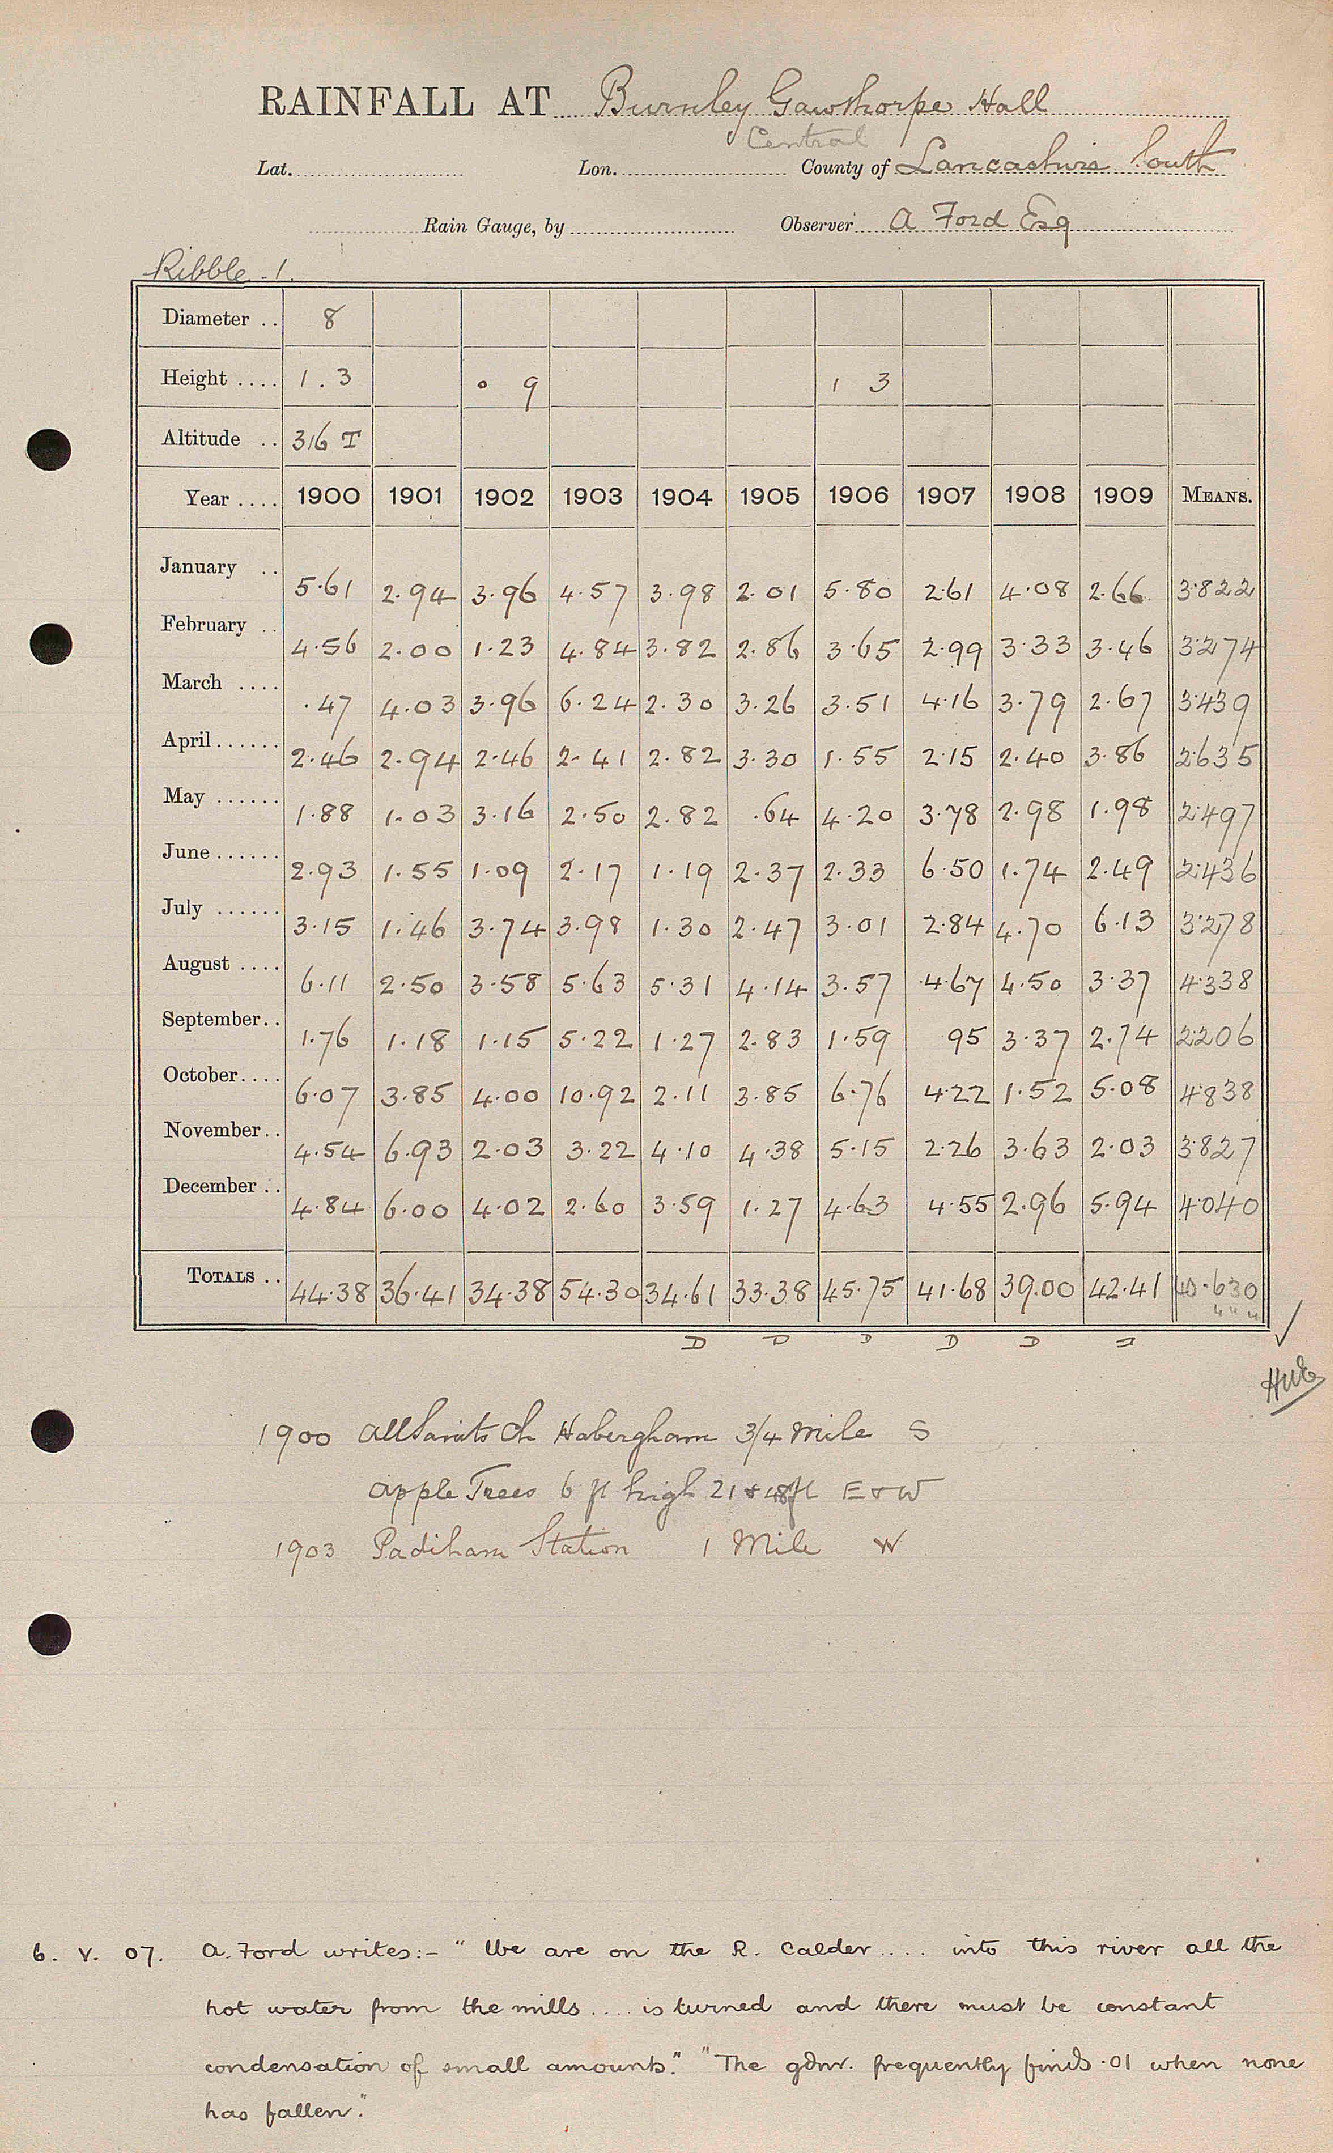 RAINFALL AT Burnley Gawthorpe Hall
Central
Lat. Lon. County of Lancashire South
Rain Gauge, by Observer A Ford Esq
Ribble 1.
Diameter .. 8
Height .... 1.3 0 9 1 3
Altitude .. 316 T
Year .... 1900 1901 1902 1903 1904 1905 1906 1907 1908 1909 MEANS.
January .. 5.61 2.94 3.96 4.57 3.98 2.01 5.80 2.61 4.08 2.66 3.822
February .. 4.56 2.00 1.23 4.84 3.82 2.86 3.65 2.99 3.33 3.46 3.274
March .... .47 4.03 3.96 6.24 2.30 3.26 3.51 4.16 3.79 2.67 3.439
April...... 2.46 2.94 2.46 2.41 2.82 3.30 1.55 2.15 2.40 3.86 2.635
May ...... 1.88 1.03 3.16 2.50 2.82 .64 4.20 3.78 2.98 1.98 2.497
June...... 2.93 1.55 1.09 2.17 1.19 2.37 2.33 6.50 1.74 2.49 2.436
July ...... 3.15 1.46 3.74 3.98 1.30 2.47 3.01 2.84 4.70 6.13 3.278
August .... 6.11 2.50 3.58 5.63 5.31 4.14 3.57 4.67 4.50 3.37 4.338
September.. 1.76 1.18 1.15 5.22 1.27 2.83 1.59 95 3.37 2.74 2.206
October.... 6.07 3.85 4.00 10.92 2.11 3.85 6.76 4.22 1.52 5.08 4.838
November.. 4.54 6.93 2.03 3.22 4.10 4.38 5.15 2.26 3.63 2.03 3.827
December .. 4.84 6.00 4.02 2.60 3.59 1.27 4.63 4.55 2.96 5.94 4.040
TOTALS .. 44.38 36.41 34.38 54.30 34.61 33.38 45.75 41.68 39.00 42.41 40.630
D D D D D D
1900 All Saints Ch Habergham 3/4 Mile S
Apple Trees 6 ft high 21 & 48 ft E & W
1903 Padiham Station 1 Mile W
6. V. 07. A. Ford writes:- "We are on the R. Calder .... into this river all the
hot water from the mills .... is turned and there must be constant
condensation of small amounts." "The gdnr. frequently finds .01 when none
has fallen."